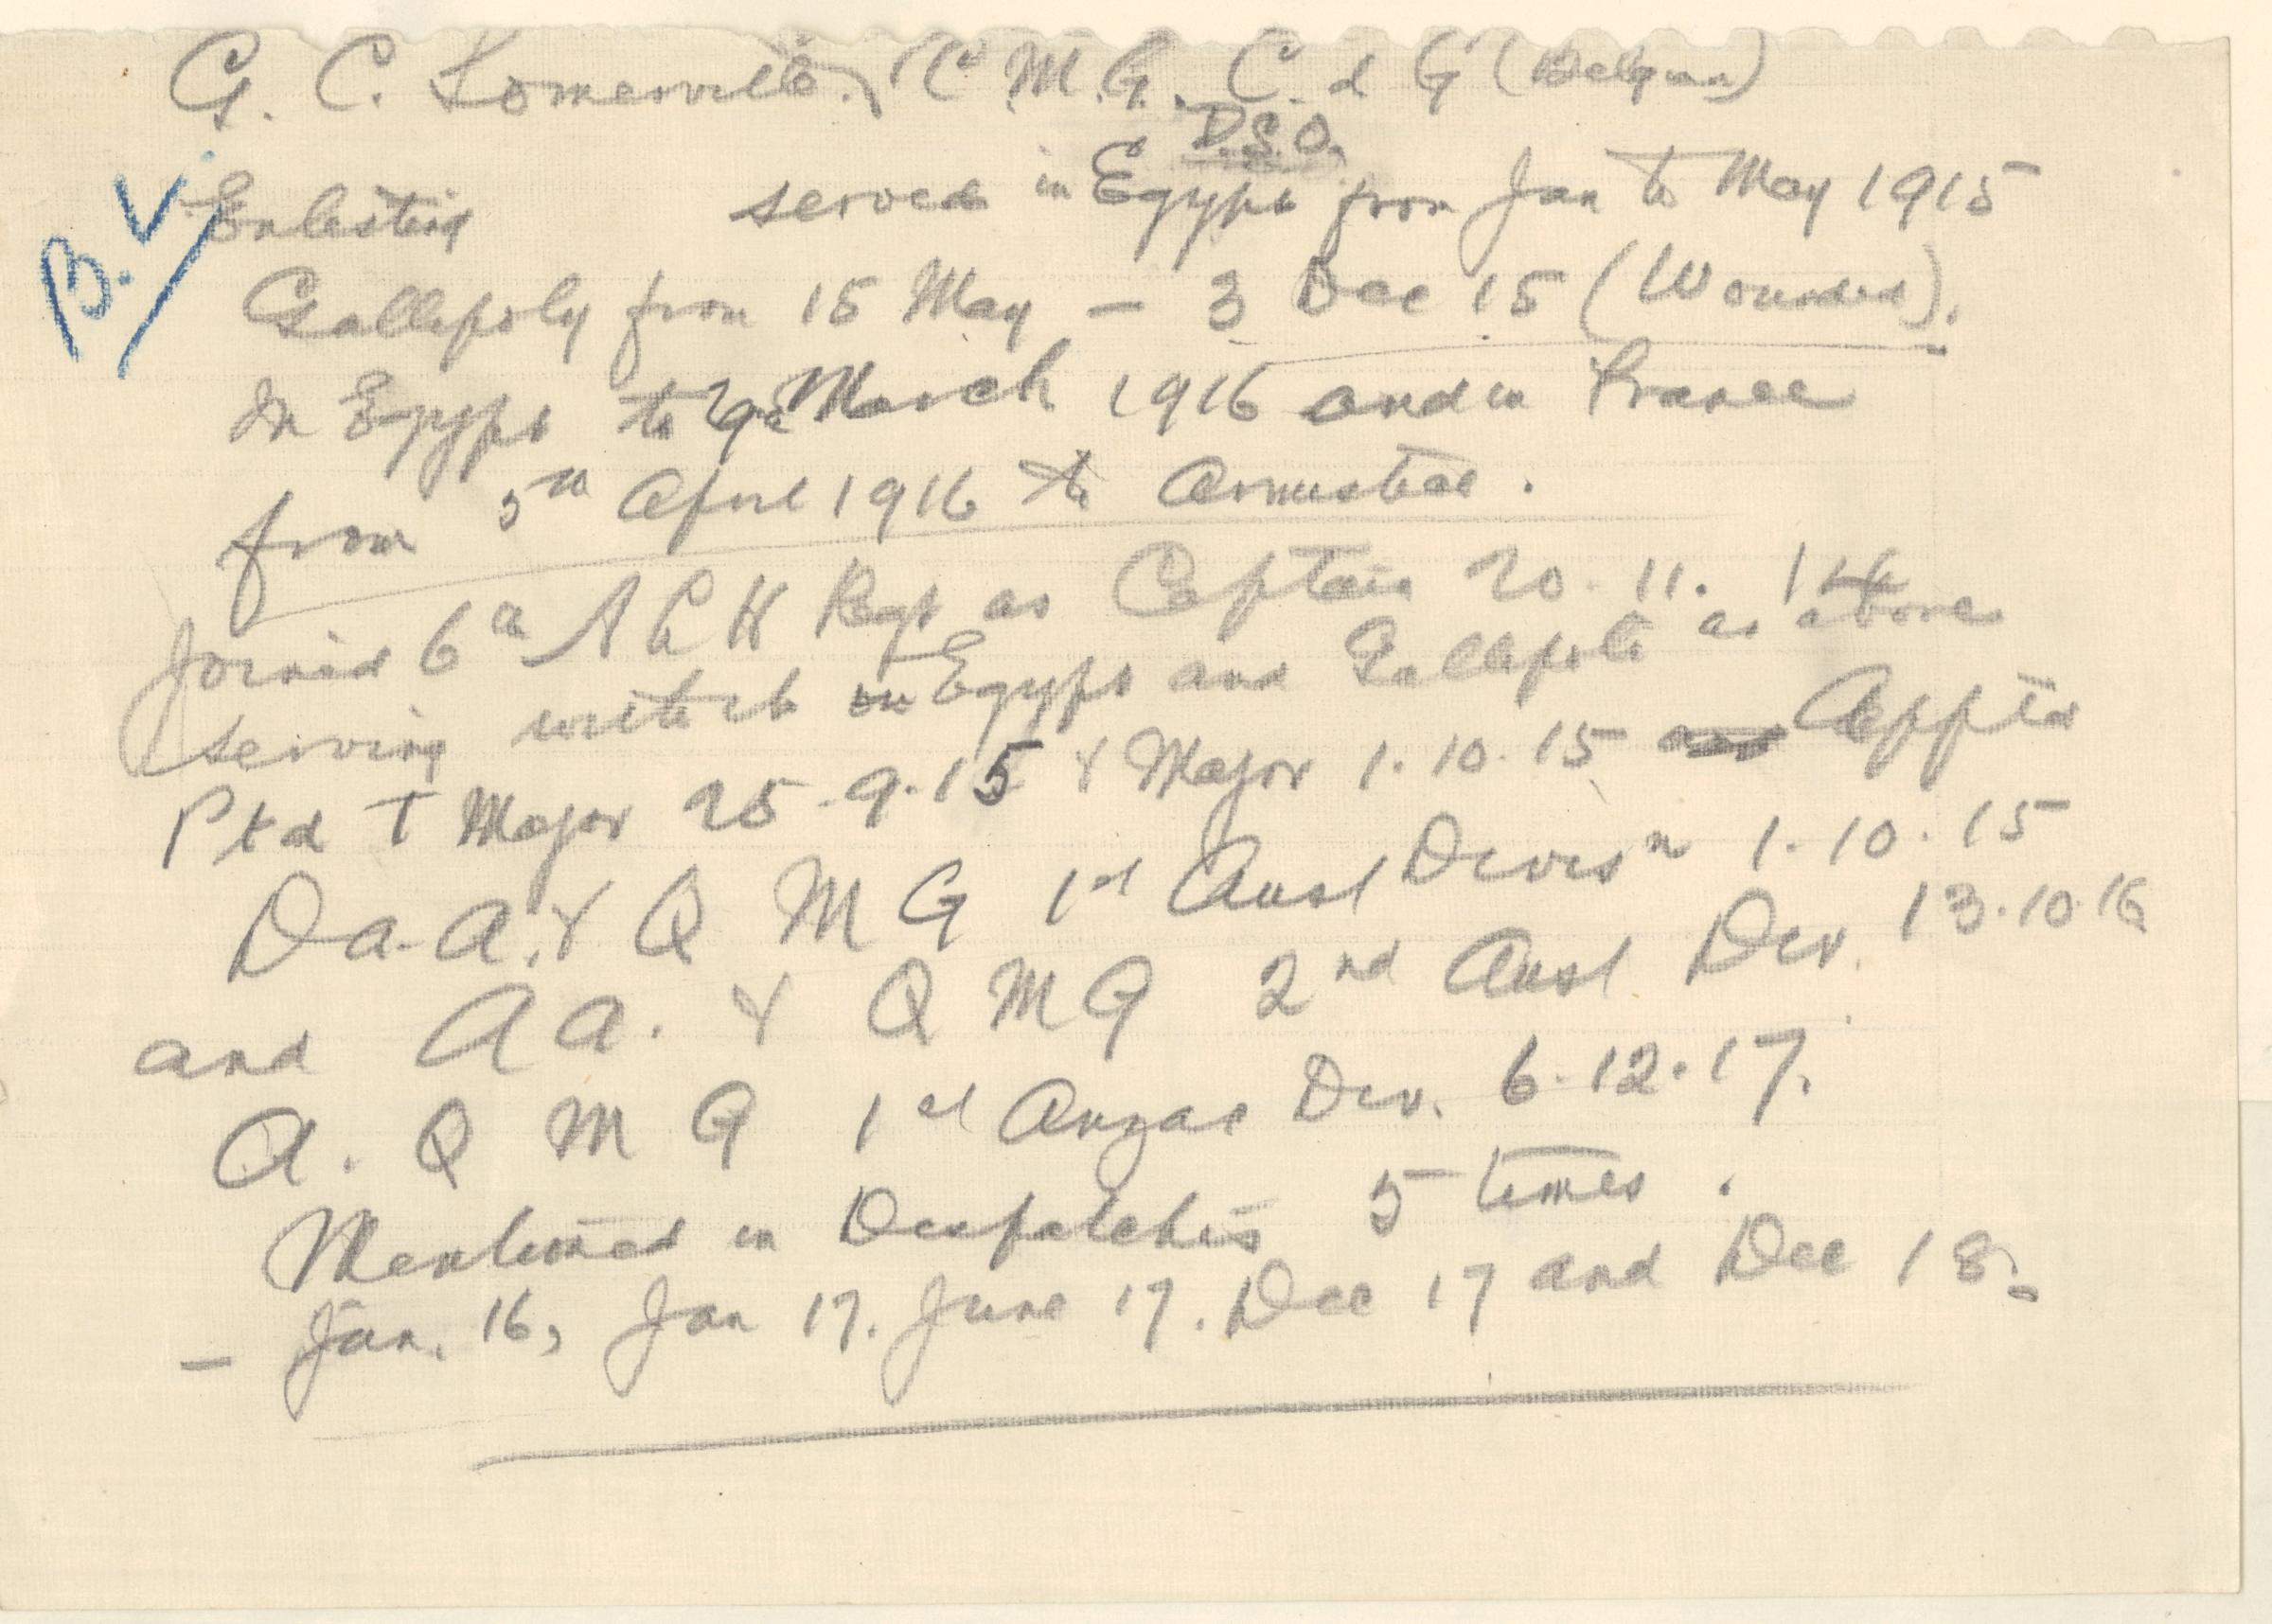 G. C. Somerville. C M G. C. d G (Belgian)
D.S.O.
B.V.
Enlisting served in Egypt from Jan to May 1915
Gallipoly from 15 May – 3 Dec 15 (Wounded).
In Egypt to March 1916 and in France
from 5th April 1916 to Armistice.
Joined 6th A L H Regt as Captain 20. 11. 14
serving with it in Egypt and Gallipoli as above
Ptd T Major 25.9.15 & Major 1.10.15 Apptd
D a. A. & Q M G 1st Aust Divisn 1.10.15
and A A. & Q M G 2nd Aust Div. 13.10.16
A. Q M G 1st Anzac Div. 6.12.17.
Mentioned in Despatches 5 times.
– Jan. 16, Jan 17. June 17. Dec 17 and Dec 18.